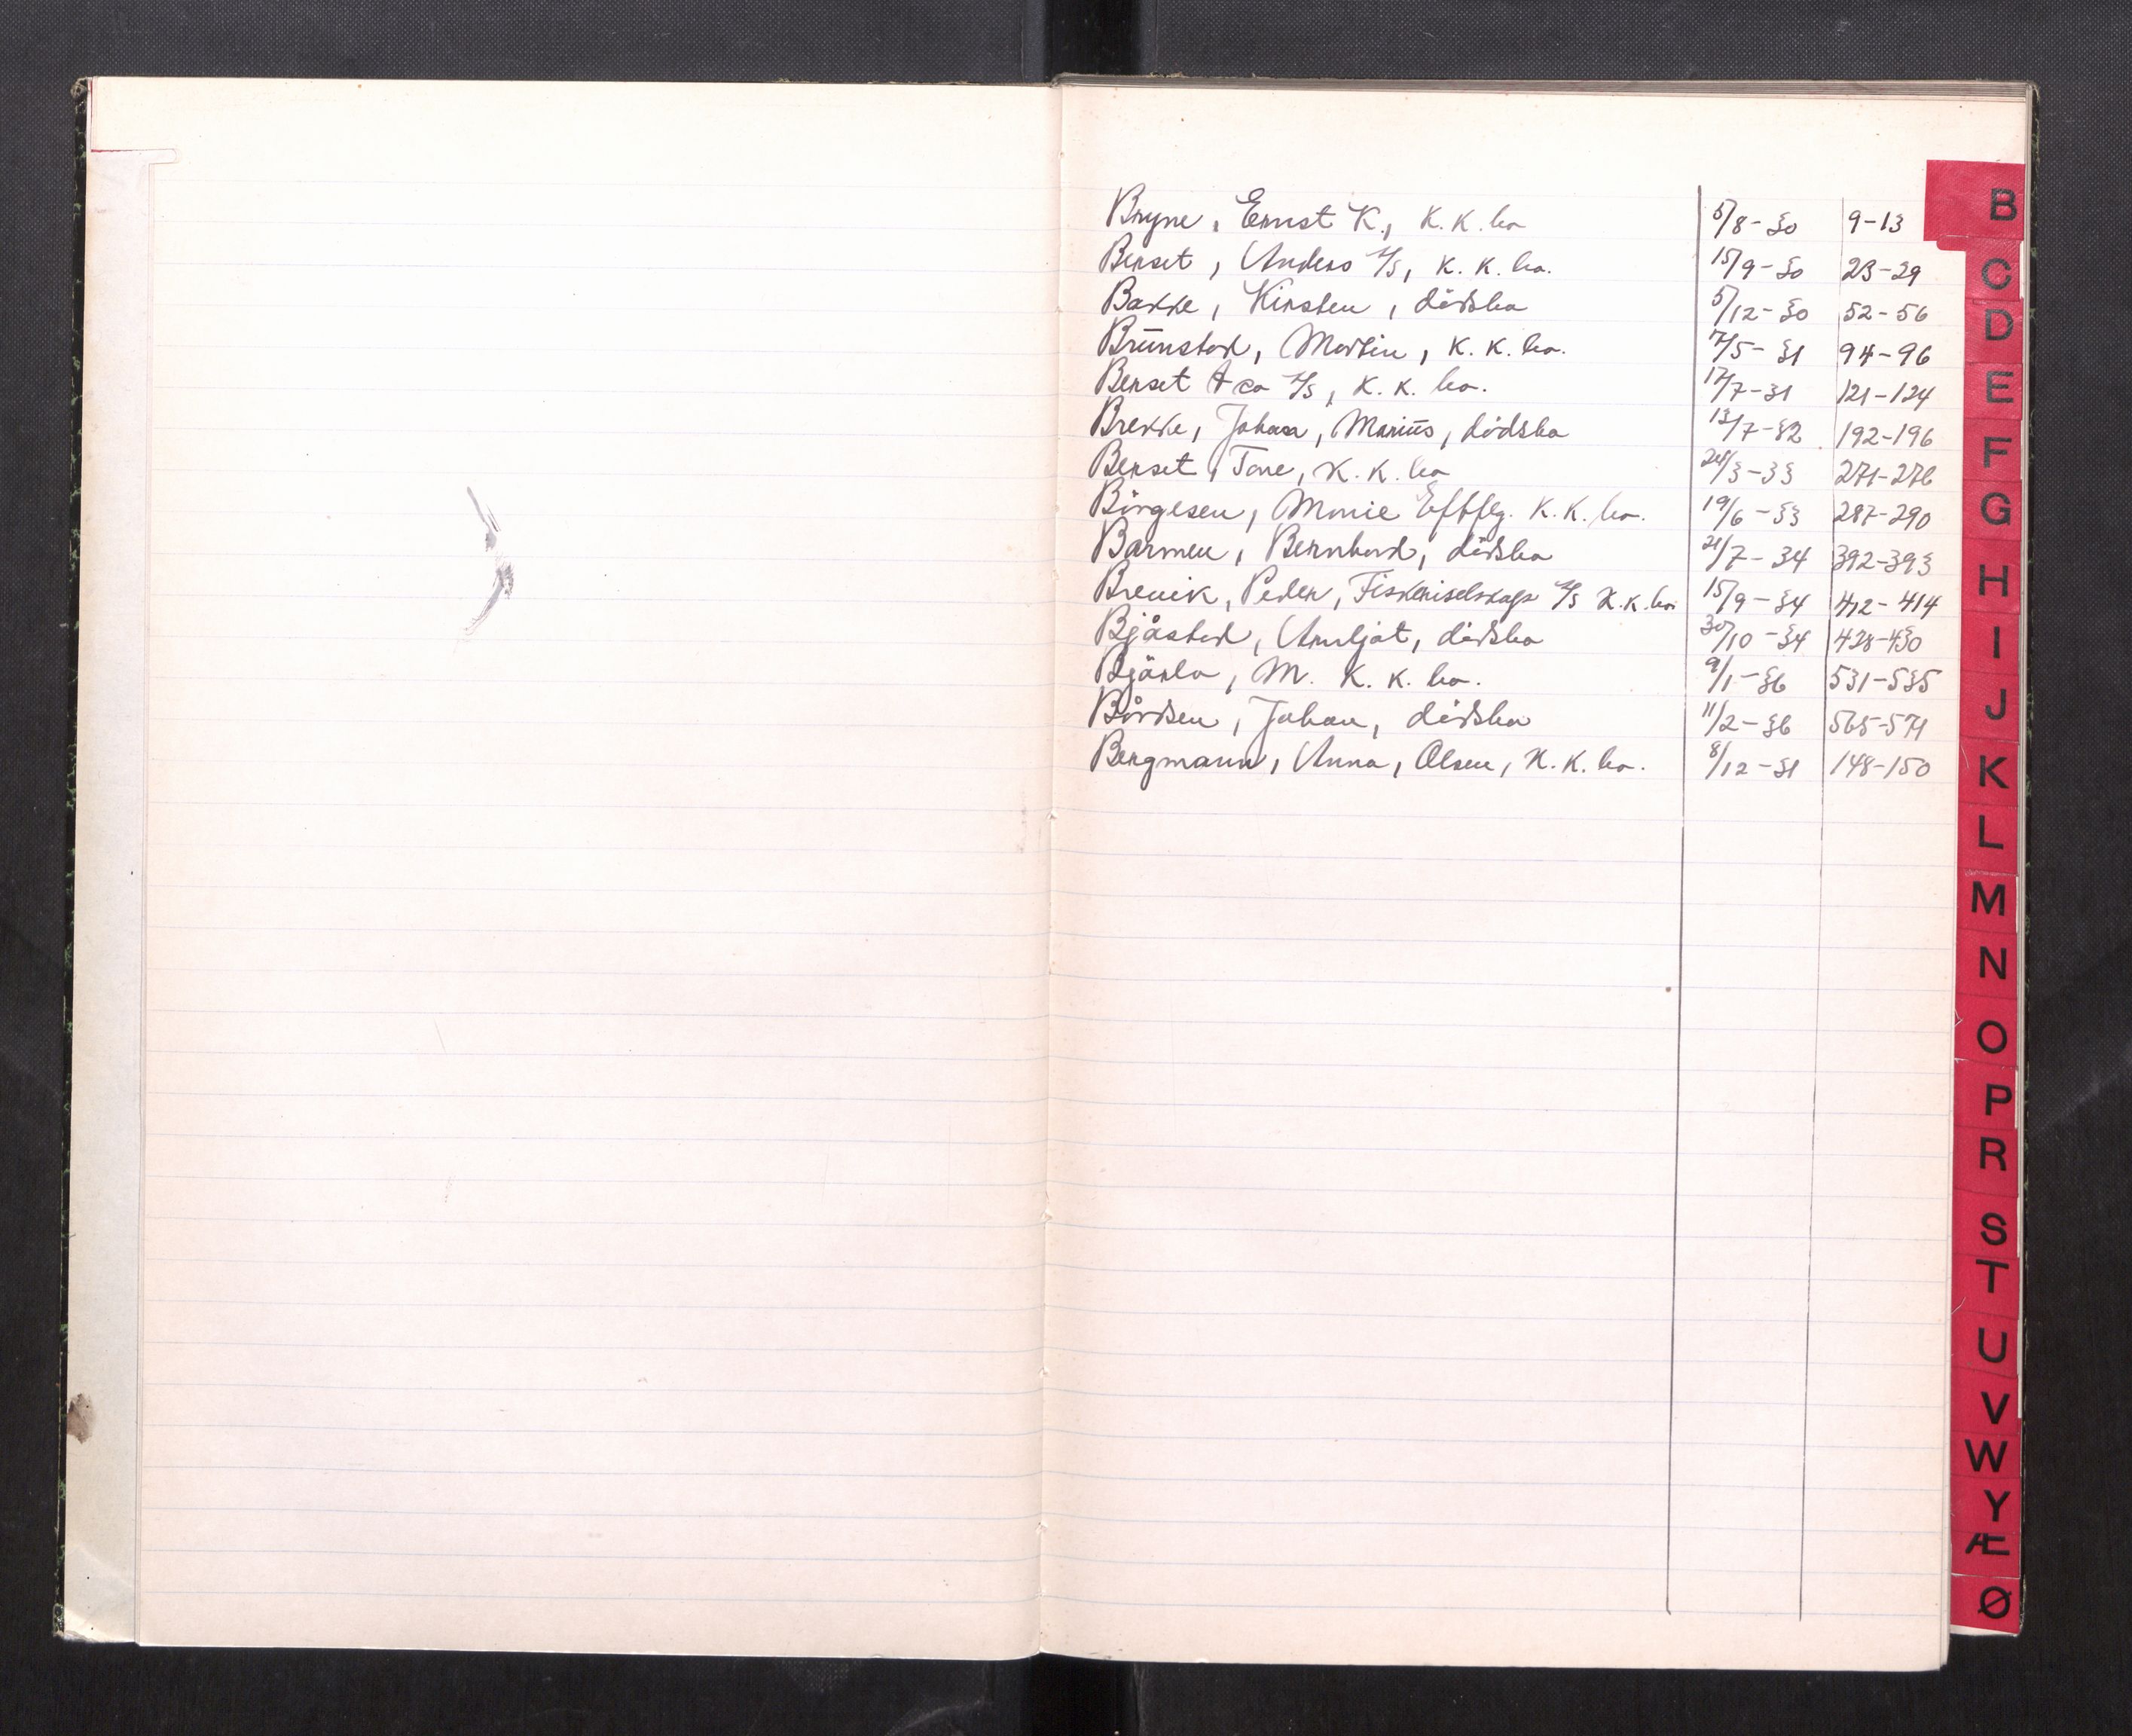 Bryne, Ernst K., K. K. bo 5/8-30 9-13
Berset, Anders A/S, K. K. bo. 15/9-30 23-29
Bakke, Kirsten, dödsbo 5/12-30 52-56
Brünstad, Martin, K. K. bo. 7/5-31 94-96
Berset & co A/S, K. K. bo. 17/7-31 121-124
Brekke, Johan, Mariüs, dödsbo 13/7-32 192-196
Berset, Tore, K. K. bo 24/3-33 271-276
Börgesen, Marie Eftflg. K. K. bo. 19/6-33 287-290
Barmen, Bernhard, dödsbo 21/7-34 392-393
Brevik, Peder, Fiskeriselskap A/S K. K. bo. 15/9-34 412-414
Bjåstad, Arnljot, dödsbo 30/10-34 428-430
Bjärlo, M. K. K. bo. 9/1-36 531-535
Bårdsen, Johan, dödsbo 11/2-36 565-571
Bergmann, Anna, Olsen, K. K. bo. 8/12-31 148-150
B
C
D
E
F
G
H
I
J
K
L
M
N
O
P
R
S
T
U
V
W
Y
Æ
Ø